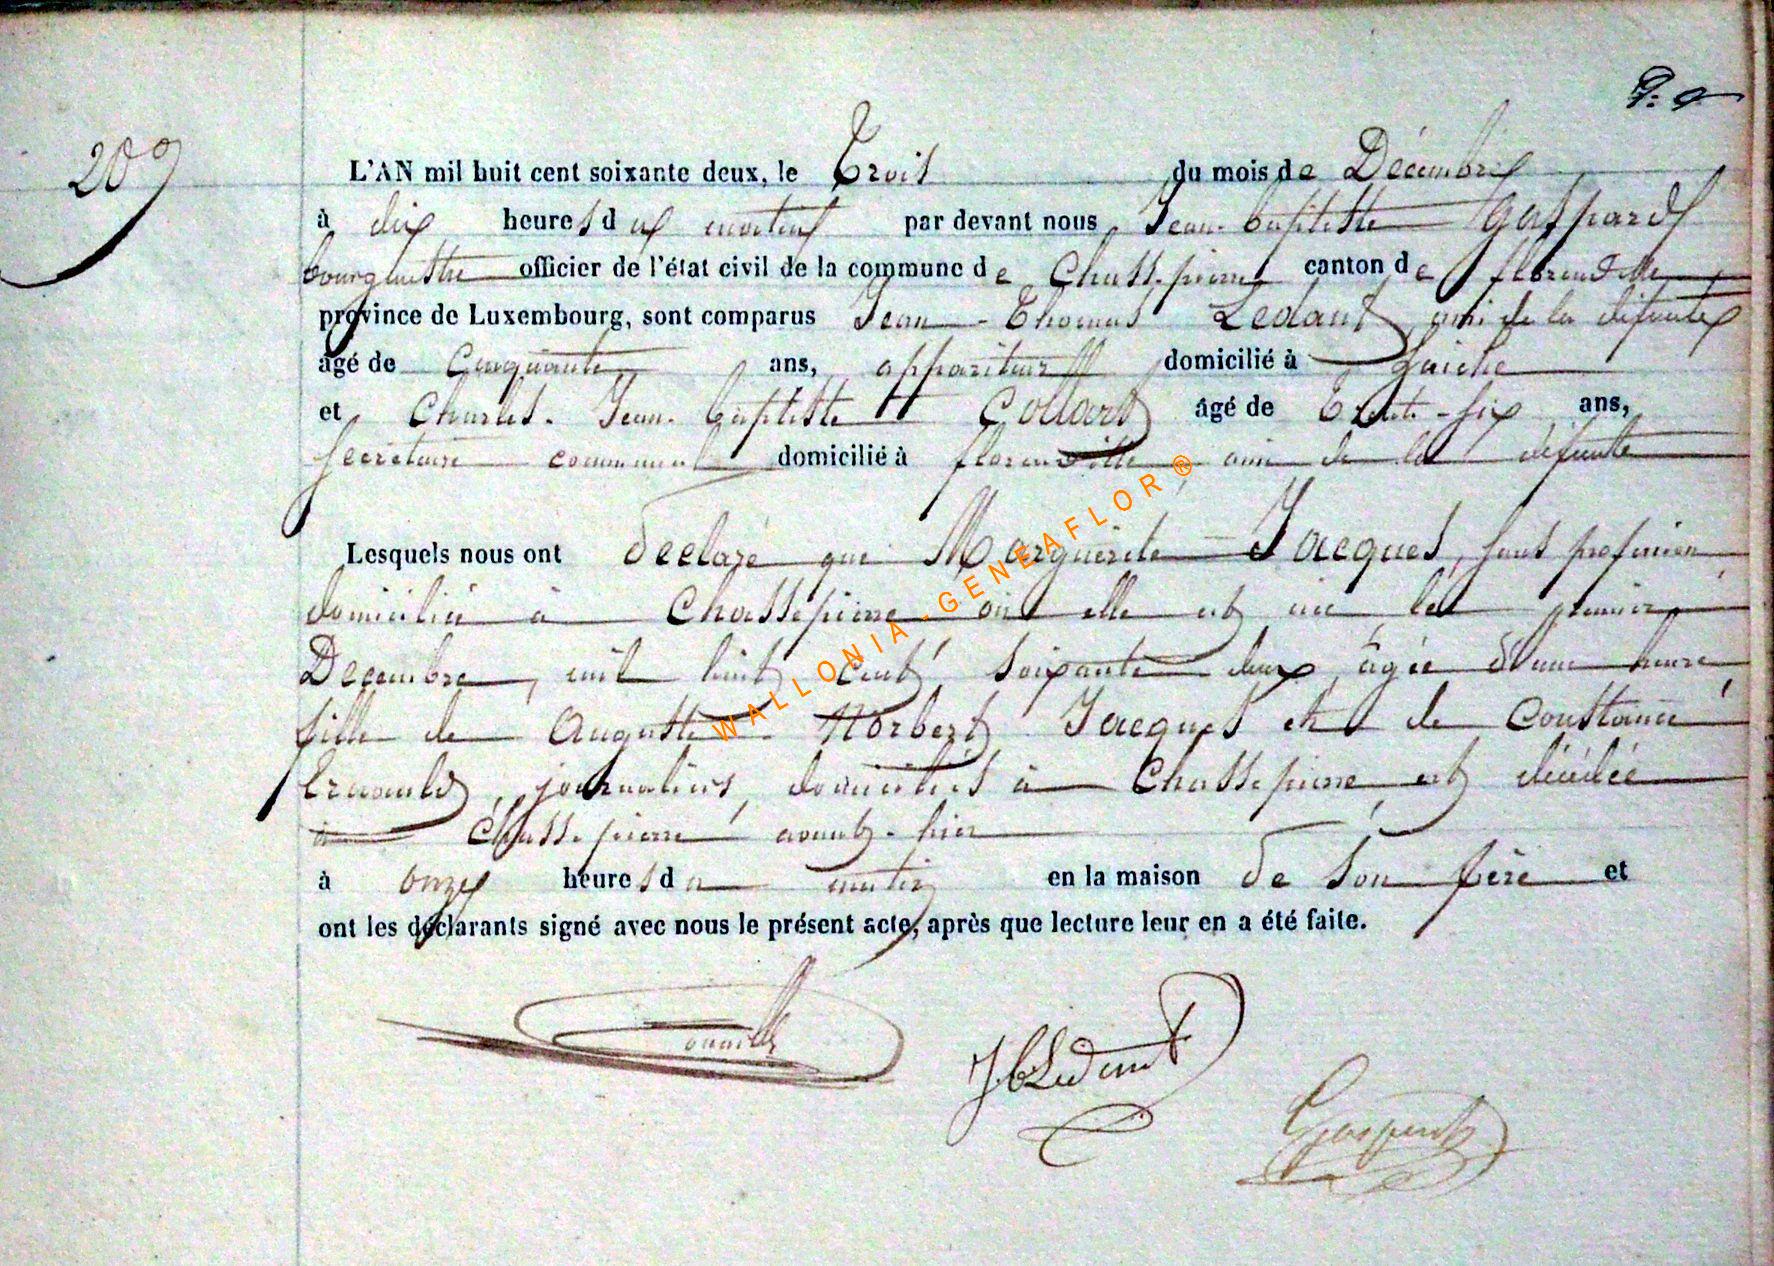 209
L'AN mil huit cent soixante deux, le Trois du mois de Décembre
à dix heures du matin par devant nous Jean-baptiste Gaspard
bourgmestre officier de l'état civil de la commune de Chassepierre canton de florenville
province de Luxembourg, sont comparus Jean-Thomas Ledant, ami de la défunte
âgé de Cinquante ans, appariteur domicilié à
et Charles-Jean-baptiste Collard âgé de Trente-six ans,
secrétaire communal domicilié à florenville, ami de la défunte
Lesquels nous ont déclaré que Marguerite Jacques, sans profession
domiciliée à Chassepierre où elle est née le premier
Decembre, mil huit cent soixante deux, âgée d'une heure
fille de Auguste-Norbert Jacques et de Constance
journaliers, domiciliés à Chassepierre, est décédée
à Chassepierre, avant-hier
à onze heures du matin en la maison de son père et
ont les déclarants signé avec nous le présent acte, après que lecture leur en a été faite.
Ledant
Gaspard
WALLONIA-GENEAFLOR®